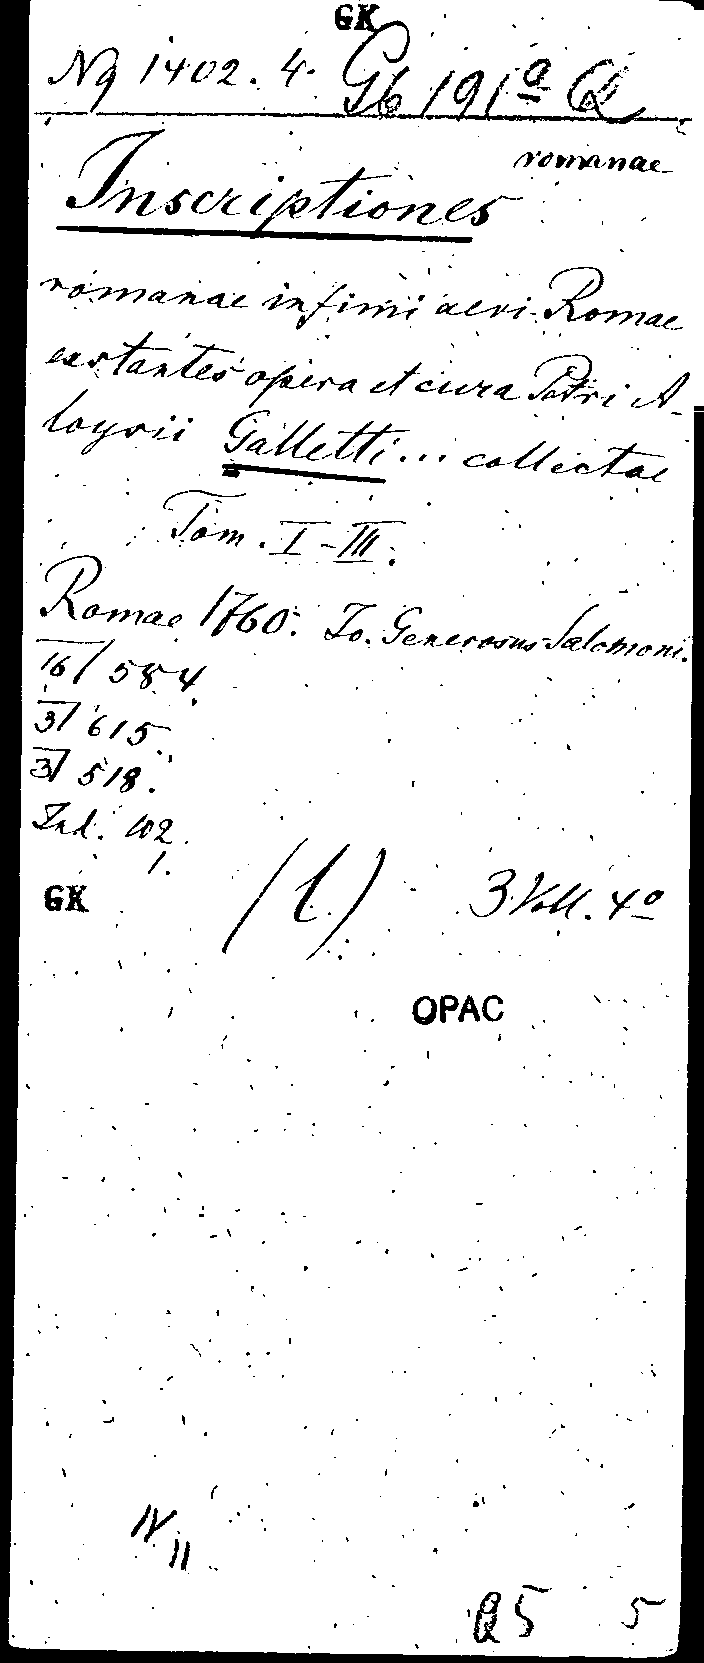 GK
Ng 1402. 4. Gb 191a Q
romanae
Inscriptiones
romanae infimi aevi Romae
exstantes opera et cura Petri A-
loysii Galletti... collectae
Tom. I-III.
Romae 1760. Jo. Generosus Salomoni.
16/ 584
3/ 615
3/ 518.
Ind. 102.
1.
GK
3 Voll. 4o
OPAC
IV
II
Q5 5